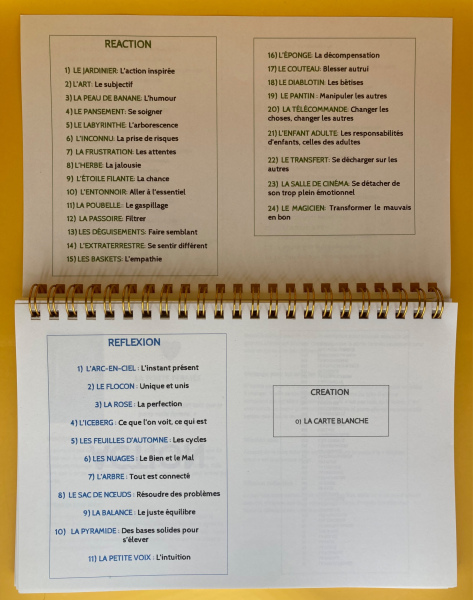 REACTION
1) LE JARDINIER: L'action inspirée
2) L'ART: Le subjectif
3) LA PEAU DE BANANE: L'humour
4) LE PANSEMENT: Se soigner
5) LE LABYRINTHE: L'arborescence
6) L'INCONNU: La prise de risques
7) LA FRUSTRATION: Les attentes
8) L'HERBE: La jalousie
9) L'ÉTOILE FILANTE: La chance
10) L'ENTONNOIR: Aller à l'essentiel
11) LA POUBELLE: Le gaspillage
12) LA PASSOIRE: Filtrer
13) LES DÉGUISEMENTS: Faire semblant
14) L'EXTRATERRESTRE: Se sentir différent
15) LES BASKETS: L'empathie
16) L'ÉPONGE: La décompensation
17) LE COUTEAU: Blesser autrui
18) LE DIABLOTIN: Les bêtises
19) LE PANTIN : Manipuler les autres
20) LA TÉLÉCOMMANDE: Changer les
choses, changer les autres
21) L'ENFANT ADULTE: Les responsabilités
d'enfants, celles des adultes
22) LE TRANSFERT: Se décharger sur les
autres
23) LA SALLE DE CINÉMA: Se détacher de
son trop plein émotionnel
24) LE MAGICIEN: Transformer le mauvais
en bon
REFLEXION
1) L'ARC-EN-CIEL : L'instant présent
2) LE FLOCON : Unique et unis
3) LA ROSE : La perfection
4) L'ICEBERG : Ce que l'on voit, ce qui est
5) LES FEUILLES D'AUTOMNE : Les cycles
6) LES NUAGES : Le Bien et le Mal
7) L'ARBRE : Tout est connecté
8) LE SAC DE NŒUDS : Résoudre des problèmes
9) LA BALANCE : Le juste équilibre
10) LA PYRAMIDE : Des bases solides pour
s'élever
11) LA PETITE VOIX : L'intuition
CREATION
0) LA CARTE BLANCHE